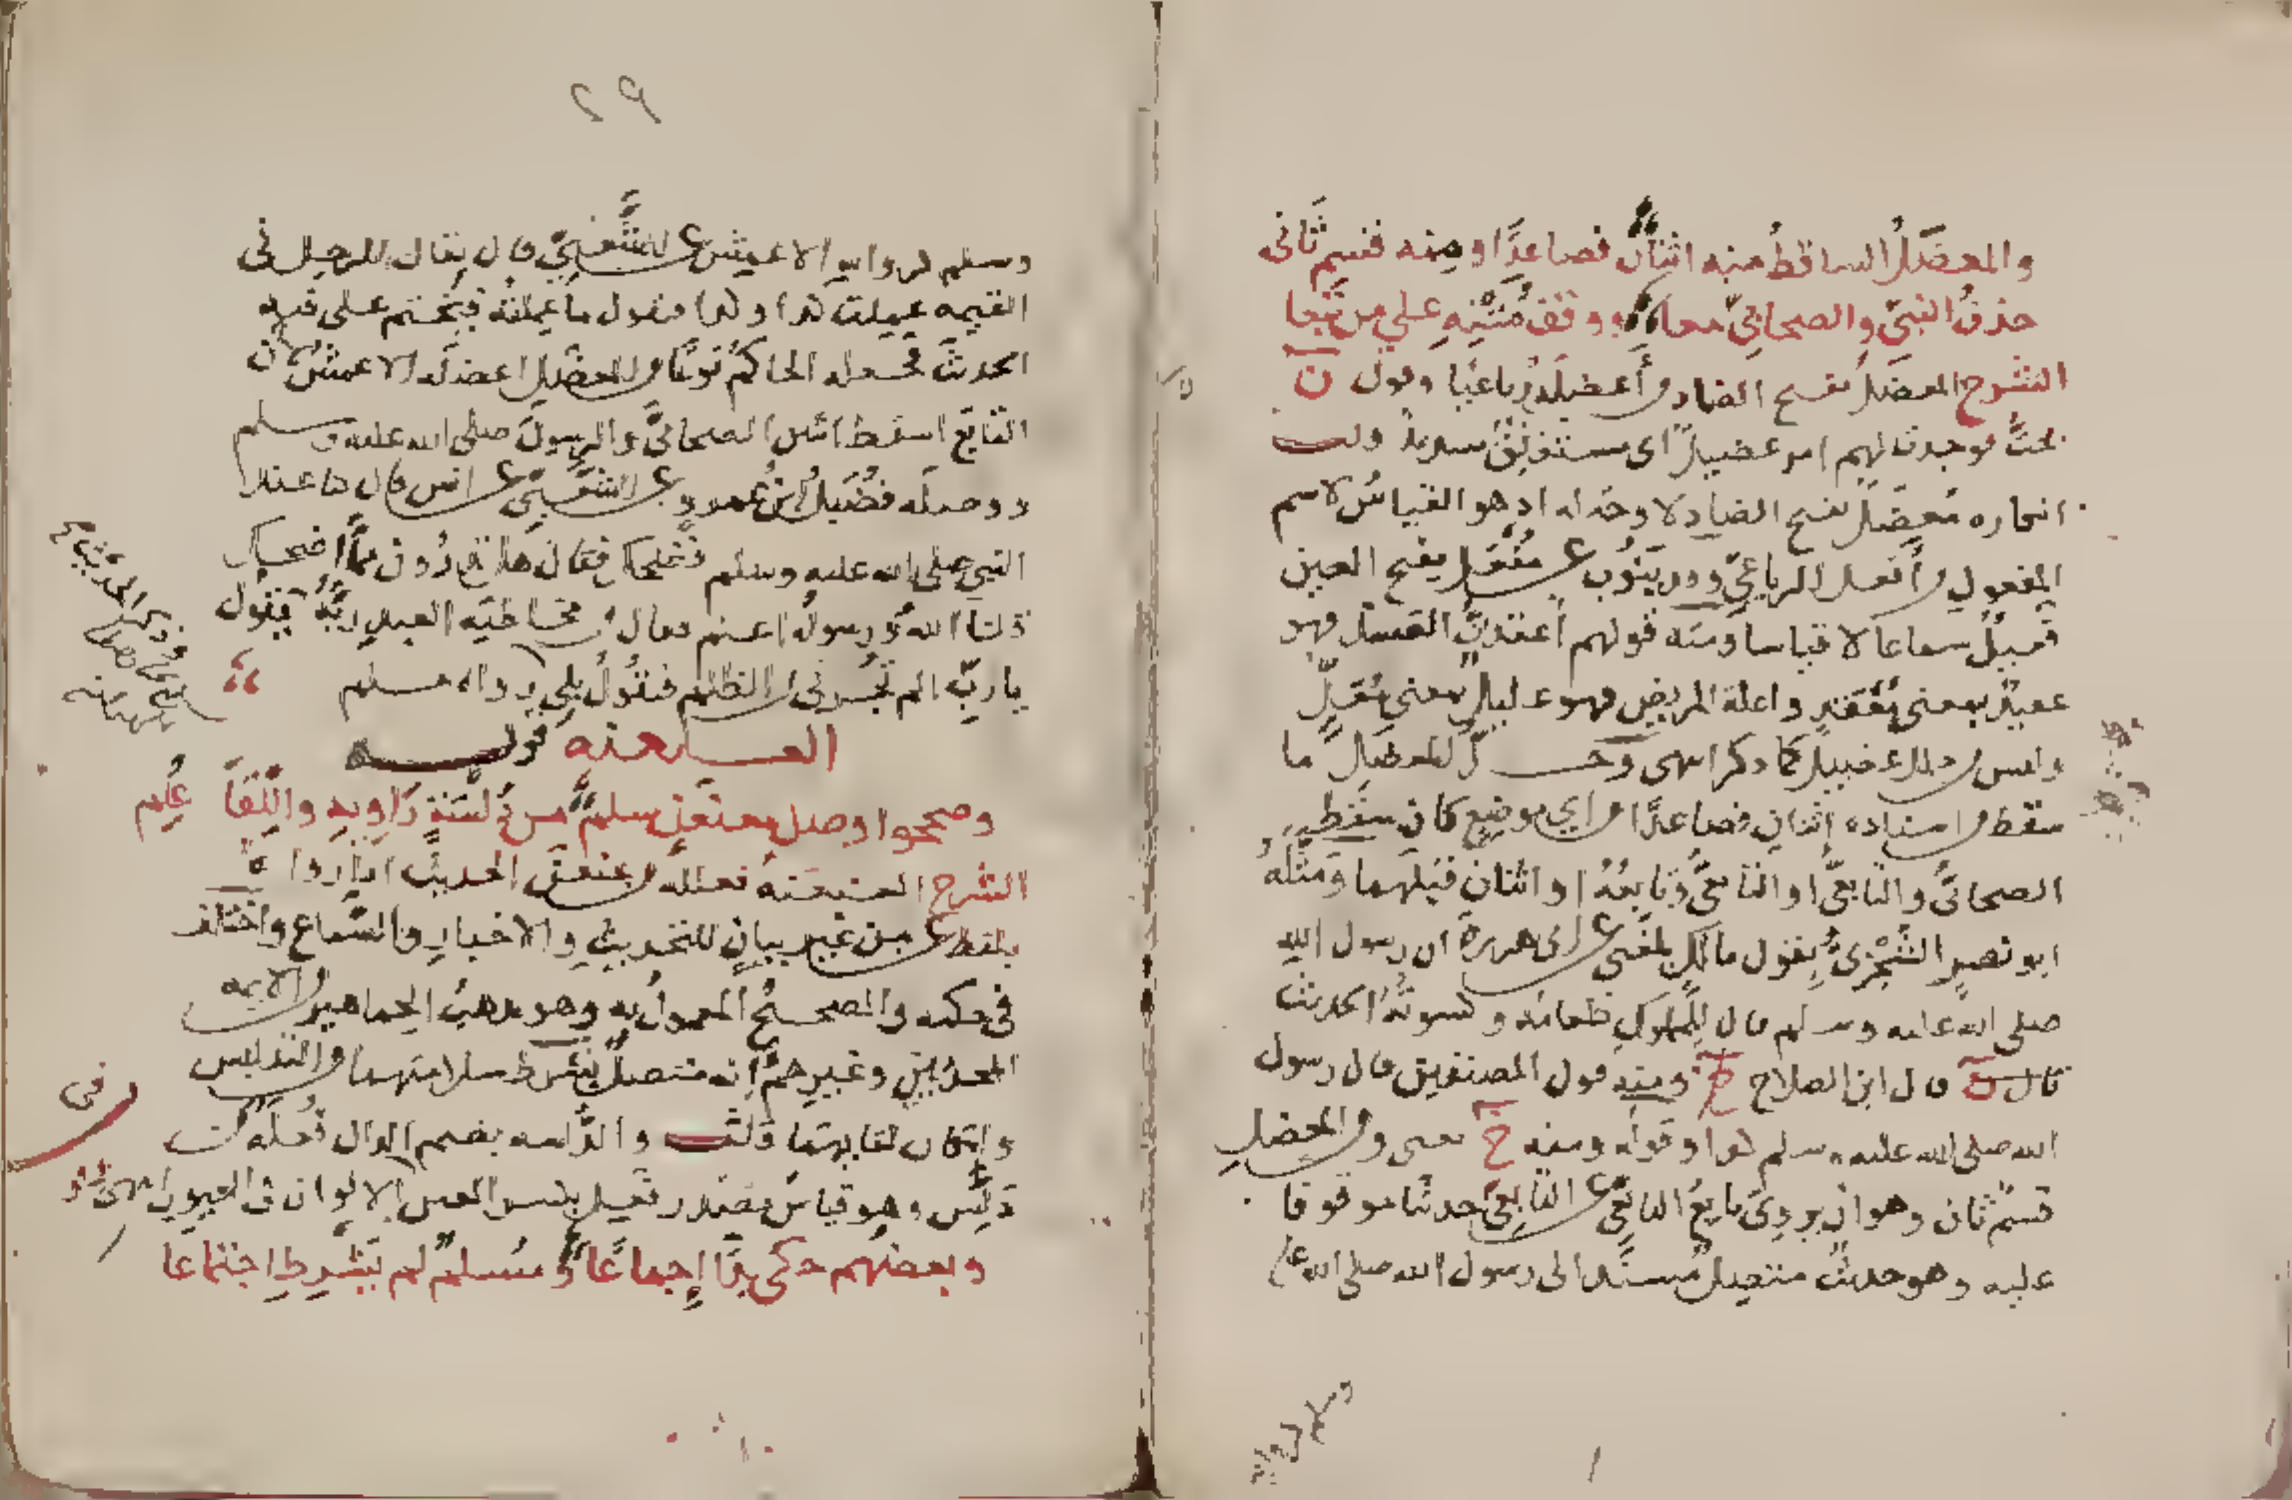 والمعضل الساقط منه اثنان فصاعدا ومنه قسم ثانى
حذف النبى والصحابى معا ووقف متنه على من تبعا
الشرح المعضل بفتح الضاد من أعضله رباعيا وقول ن
بحث فوجدت لهم امر عضيل اى مستغلق شديد قلت
انجاره معضل بفتح الضاد لا وجه له اذ هو القياس لاسم
المفعول من أفعل الرباعى وقد ينوب عن مفعل بفتح العين
فعيل سماعا لا قياسا ومنه قولهم أعقدت العسل فهو
عقيد بمعنى مُعْقَد واعله المريض فهو عليل بمعنى مُعَلّ
وليس من ذلك عضيل كما ذكر انتهى وحد المعضل ما
سقط من اسناده اثنان فصاعدا من اى موضع كان سقط
الصحابى والتابعى او التابعى وتابعه او اثنان قبلهما ومثله
ابو نصر السجزى بقول مالك بلغنى عن ابى هريرة ان رسول الله
صلى الله عليه وسلم قال للمملوك طعامه وكسوته الحديث
قال ابن الصلاح ومنه قول المصنفين قال رسول
الله صلى الله عليه وسلم كذا وقوله ومنه يعنى ومن المعضل
قسم ثان وهو ان يروى تابع التابعى عن التابعى حديثا موقوفا
عليه وهو حديث متصل مسند الى رسول الله صلى الله عل
٢٩
وسلم كرواية الاعمش عن الشعبى قال يقال للرجل فى
القيمه عملت كذا وكذا فيقول ما عملته فيختم على فيه
الحديث فجعله الحاكم نوعا من المعضل اعضله الاعمش لان
التابع اسقط اثنين الصحابى والرسول صلى الله عليه وسلم
ووصله فضيل بن عمرو عن الشعبى عن انس قال كنا عند
النبى صلى الله عليه وسلم فضحك فقال هل تدرون مما اضحك
قلنا الله ورسوله اعلم فقال من مخاطبة العبد ربه يقول
يا رب الم تجرنى من الظلم فيقول بلى رواه مسلم
العنعنه قوله
وصححوا وصل معنعن سلم من دُلسَة راويه واللقا علم
الشرح العنعنه فعلله من عنعن الحديث اذا رواه
بلفظ عن من غير بيان للتحديث والاخبار والسماع واختلف
فى حكمه والصحيح المعمول به وهو مذهب الجماهير من الايمه
المحدثين وغيرهم انه متصل بشرط سلامتهما من التدليس
وامكان لقايهما قلت والدُّلسه بضم الدال فُعله من
دَلِسَ وهو قياس مصدر فعيل بكسر العين من الالوان فى العيوب انتهى
وبعضهم حكى بذا إجماعا ومسلم لم يشرط اجتماعا